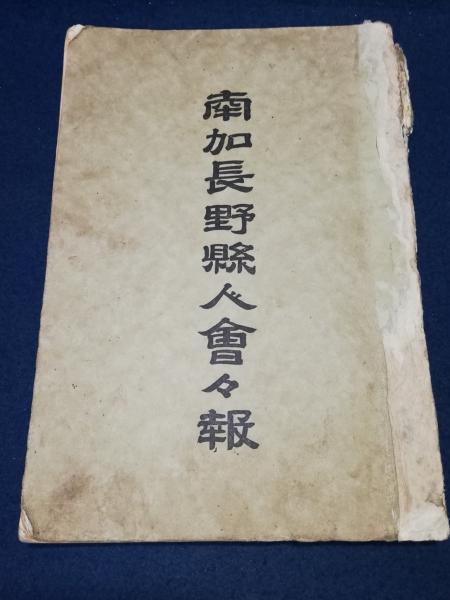 南加長野縣人會々報